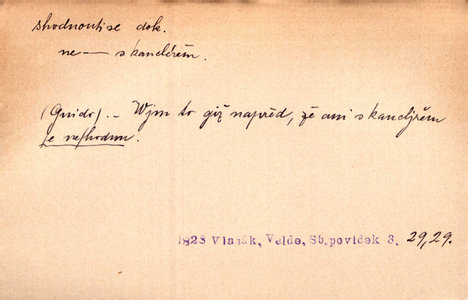 shodnouti se dok.
ne— s kancléřem.
(Guido). – Wjm to giž napřéd, že ani s kancljřem
se neshodnu.
1823 Vlasák, Velde, Sb.povídek 3, 29,29.